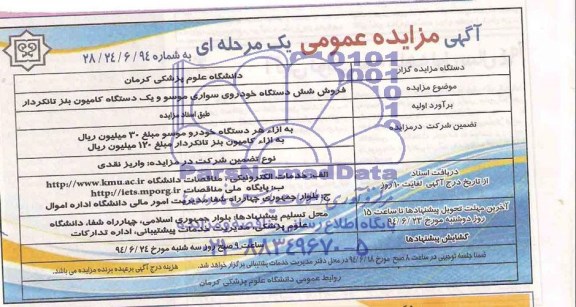 آگهی مزایده عمومی یک مرحله ای به شماره ۲۸/۲۴/۶/۹۴
دستگاه مزایده گزار
دانشگاه علوم پزشکی کرمان
موضوع مزایده
فروش شش دستگاه خودروی سواری موسو و یک دستگاه کامیون بنز تانکردار
برآورد اولیه
طبق اسناد مزایده
تضمین شرکت در مزایده
به ازاء هر دستگاه خودرو موسو مبلغ ۳۰ میلیون ریال
به ازاء کامیون بنز تانکردار مبلغ ۱۲۰ میلیون ریال
نوع تضمین شرکت در مزایده: واریز نقدی
دریافت اسناد
از تاریخ درج آگهی لغایت ۱۰ روز
الف: خدمات الکترونیکی، مناقصات دانشگاه http://www.kmu.ac.ir
ب: پایگاه ملی مناقصات http://iets.mporg.ir
ج: بلوار جمهوری چهارراه شفا، مدیریت امور مالی دانشگاه اداره اموال
آخرین مهلت تحویل پیشنهادها تا ساعت ۱۵
روز دوشنبه مورخ ۹۴/۶/۲۳
محل تسلیم پیشنهادها: بلوار جمهوری اسلامی، چهارراه شفا، دانشگاه
علوم پزشکی خدمات پیشتیبانی، اداره تدارکات
گشایش پیشنهادها
ساعت ۹ صبح روز سه شنبه مورخ ۹۴/۶/۲۴
جلسه توجیهی در ساعت ۸ صبح مورخ ۹۴/۶/۱۸ در محل دفتر مدیریت خدمات پشتیبانی برگزار خواهد شد. هزینه درج آگهی برعهده برنده مزایده می باشد.
روابط عمومی دانشگاه علوم پزشکی کرمان